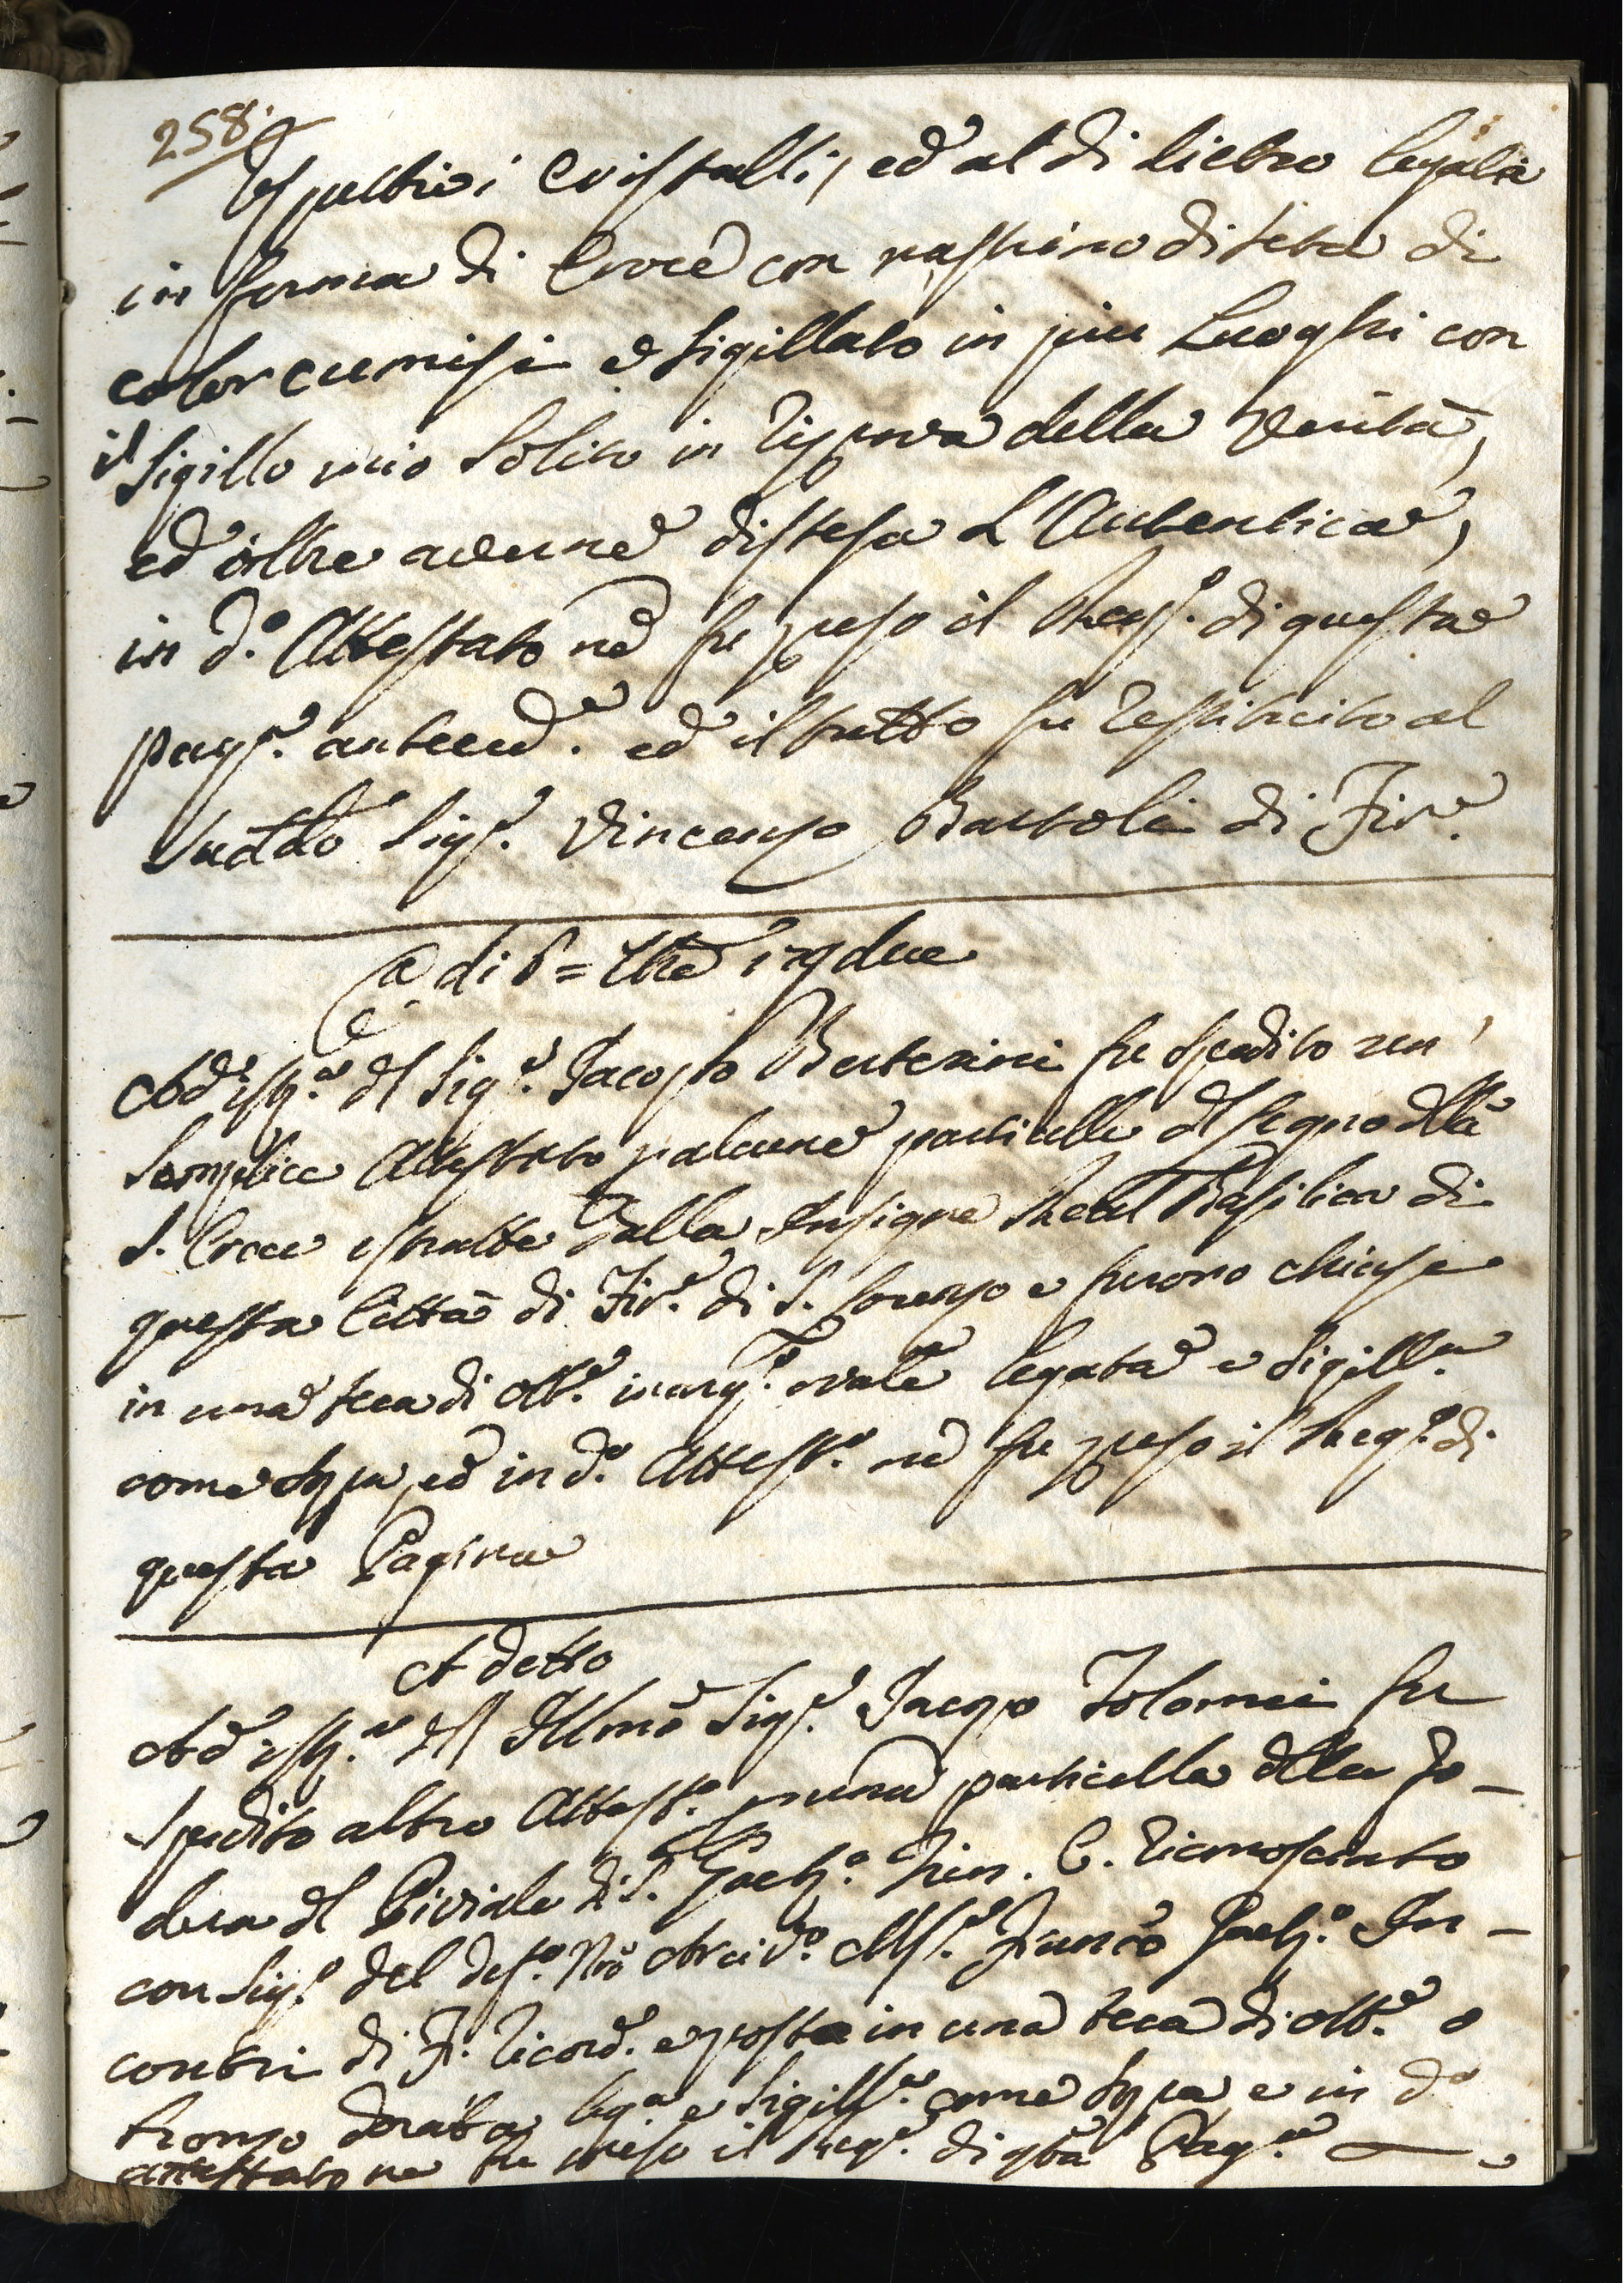 258.
cristalli, ed al di dietro legata
in forma di Croce con nastrino di seta di
color cremisi e sigillato in piu Luoghi con
il sigillo mio solito in riprova della verità,
ed oltre averne distesa L'Autentica,
in d.º Attestato ne fu preso il Reg.º di questa
pag.ª anteced.e ed il tutto fu restituito al
sudd.º Sig.r Vincenzo Bartoli di Fir.e
A di 8 = 1792
Ad ist.za del Sig.r Jacopo Berterini fu spedito un'
semplice Attestato p alcune particelle del segno della
S. Croce estratte dalla Insigne Real Basilica di
questa Città di Fir.e di S. Lorenzo e furono chiuse
in una teca di ott.e inarg.ta ovale legata e sigill.ta
come sopra, ed in d.º Attest.º ne fu preso il Reg.º di
questa Pagina
A detto
Ad ist.za dell Illmo Sig.r Jacopo Tolomei fu
spedito altro Attest.º p una particella della fo-
dera del Piviale di S. Gaet.º Tien. C. riconosciuto
con sig.º del def.º Nro Arciv.º Ms.r Franc.º Gaet.º In-
contri di F. ricord. e posta in una teca di ott.e o
bronzo dorata leg.a e sigill.a come sopra e in d.º
attestato ne fu preso il Reg.º di qta Pag.na